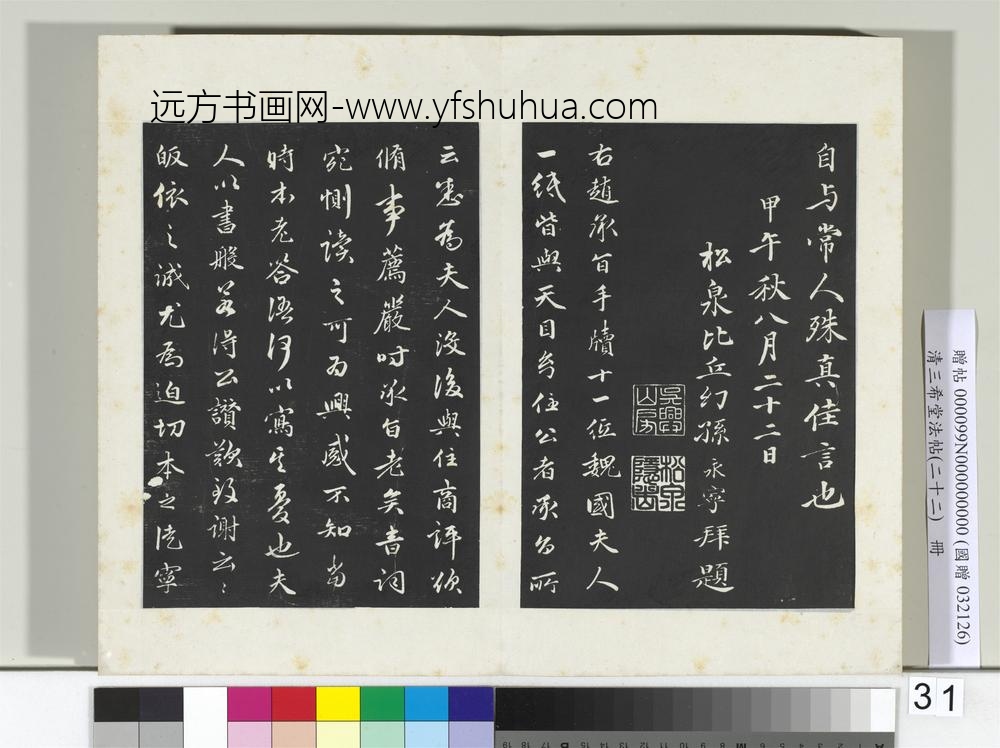 远方书画网-www.yfshuhua.com
自与常人殊真佳言也
甲午秋八月二十二日
松泉比丘幻孫永寧拜題
吳興山房
松泉隱當
右趙承旨手牘十一紙魏國夫人
一紙皆與天目幻住公者承旨所
云悉為夫人沒後與住商評欲
脩事薦嚴時承旨老矣音詞
宛惻讀之可為興感不知當
時本老答語何以寫其憂也夫
人以書般若得公讚歎致謝云云
皈依之誠尤為迫切本之徒寧
贈帖 000099N000000000 (國贈 032126)
清三希堂法帖(二十二) 冊
31